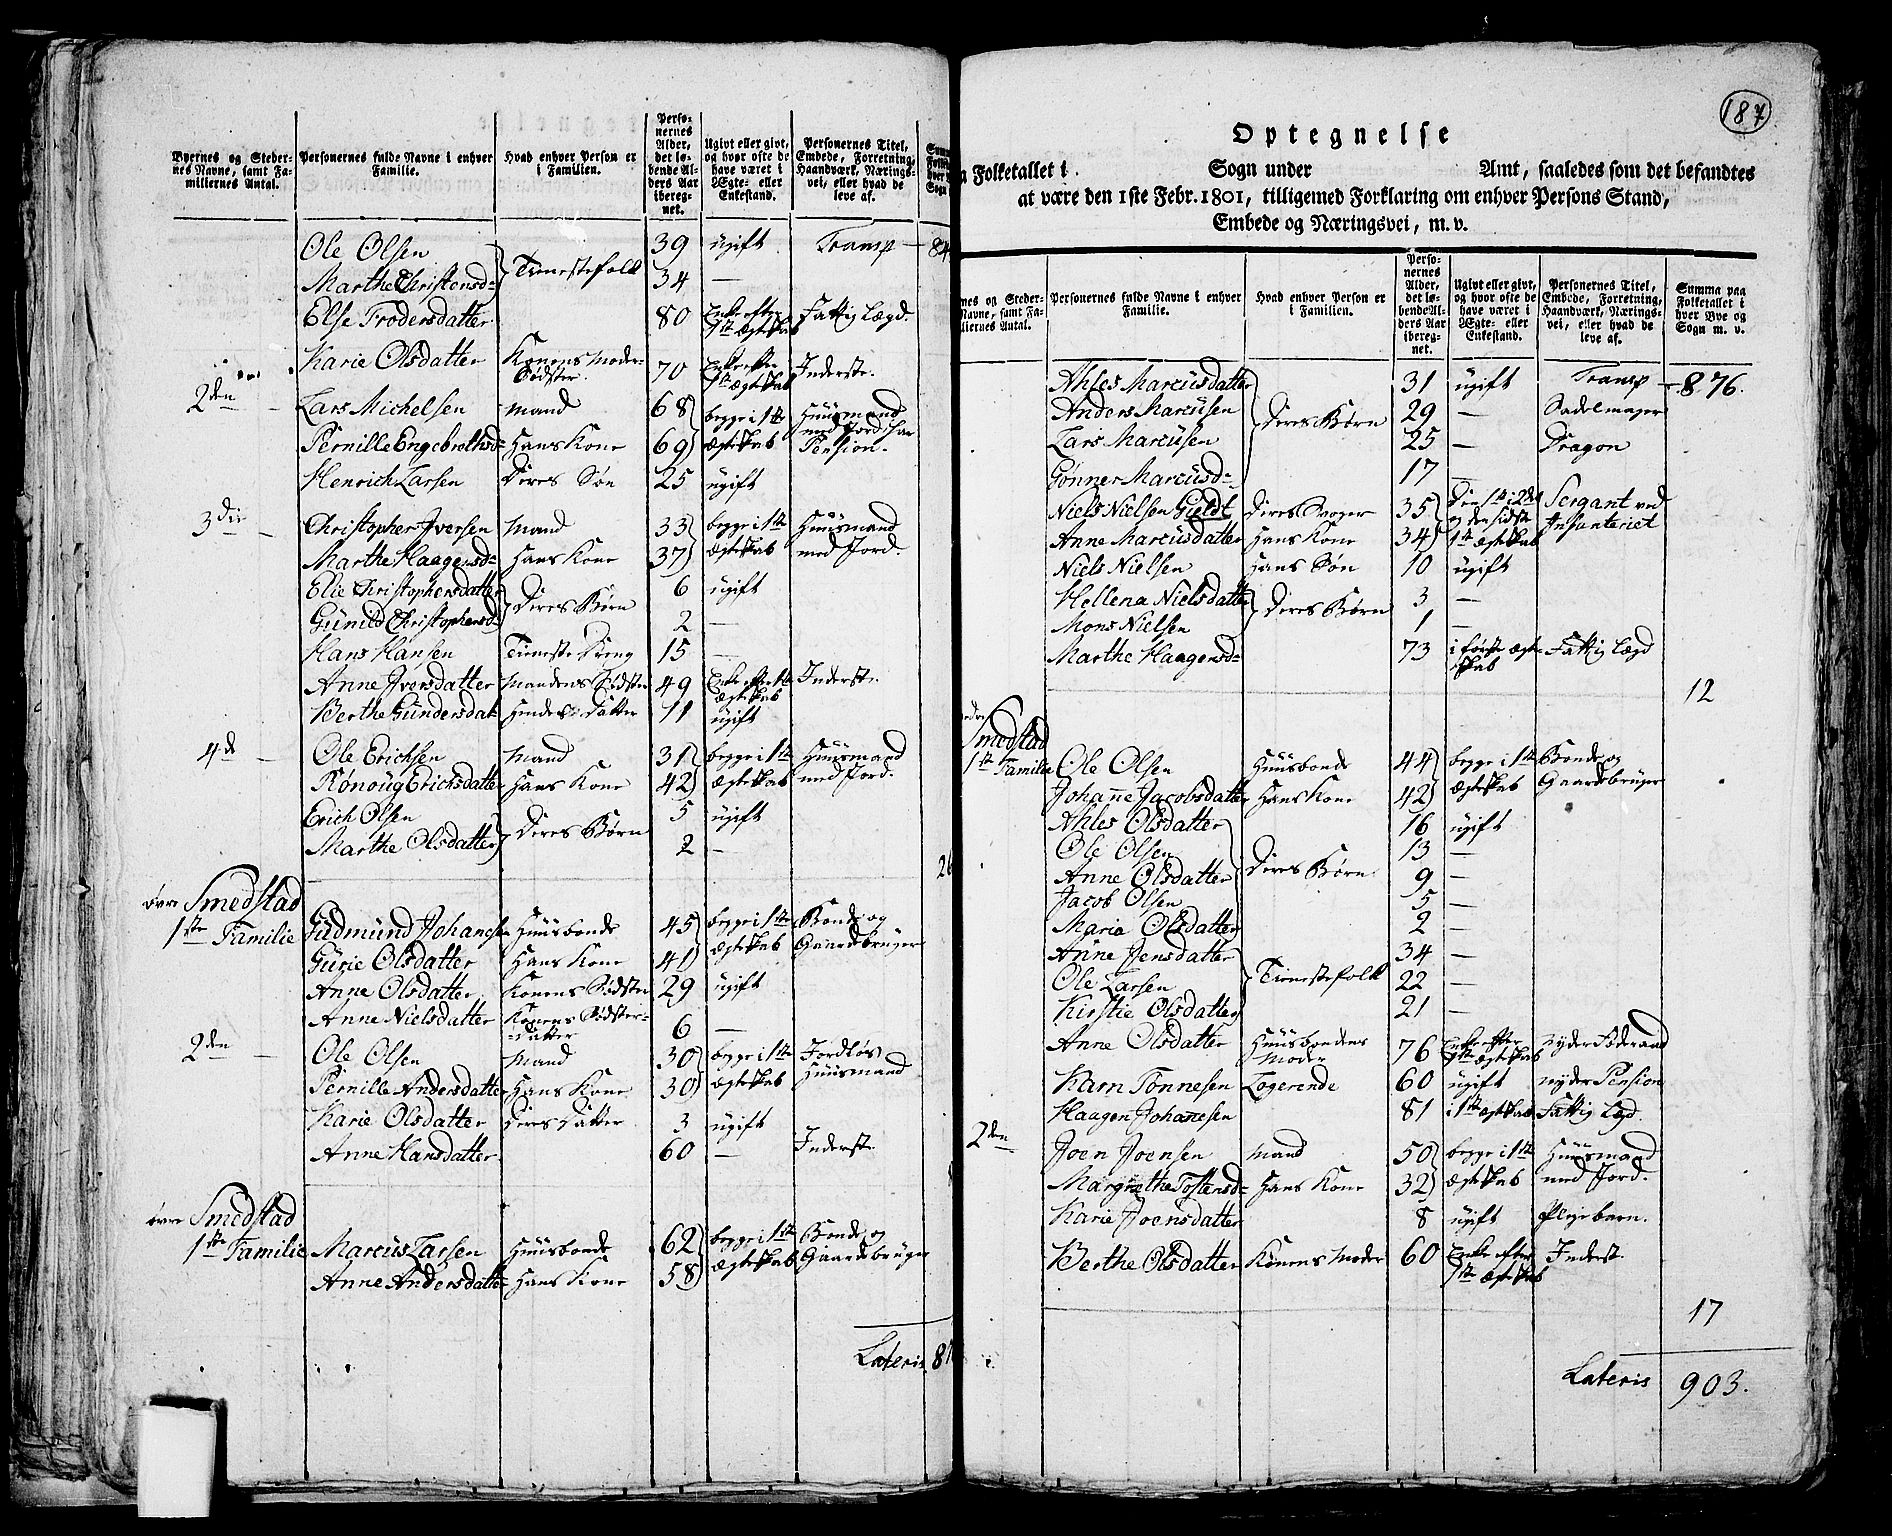 Byernes og Steder- Personernes fulde Navne i enhver Hvad enhver Person er Perso- Ugivt eller givt, Personernes Titel,
nes Navne, samt Fa- Familie. i Familien. nernes Alder, det lø- bende Al- ders Aar iberegnet. og hvor ofte de have været i Ægte- eller Enkestand. Embede, Forretning, Haandværk, Nærings- vei, eller hvad de leve af.
miliernes Antal.
Ole Olsen } Tienestefolk 39 ugift Transp — 84
Marthe Christensd= 34 —
Else Frodersdatter 80 Enke efter 1ste ægteskab Fattig Lægd.
Karie Olsdatter Konens Moder- Södster. 70 Enke efter 1ste ægteskab Inderste.
2den — Lars Michelsen Mand 68 begge i 1ste ægteskab Huusmand med Jord, har Pension.
Pernille Engebrethsd= Hans Kone 69
Henrich Larsen Deres Søn 25 ugift
3die — Christopher Iversen Mand 33 begge i 1ste ægteskab Huusmand med Jord.
Marthe Haagensd= Hans Kone 37
Elie Christophersdatter } Deres Børn 6 ugift
Gunild Christophersd= 2 —
Hans Hansen Tieneste Dreng 15 —
Anne Iversdatter Mandens Södster 49 Enke efter 1ste ægteskab Inderste.
Berthe Gundersdat= Hendes Datter 11 ugift
4de — Ole Erichsen Mand 31 begge i 1ste ægteskab Huusmand med Jord.
Rønoug Erichsdatter Hans Kone 42
Erich Olsen } Deres Børn 5 ugift
Marthe Olsdatter 2 —
26
øvre Smedstad
1ste Familie Gudmund Johanesen Huusbonde 45 begge i 1ste ægteskab Bonde og Gaardbruger
Gurie Olsdatter Hans Kone 41
Anne Olsdatter Konens Södster 29 ugift
Anne Nielsdatter Konens Södster- Datter 6 —
2den — Ole Olsen Mand 30 begge i 1ste ægteskab Jordløs Huusmand
Pernille Andersdatter Hans Kone 30
Karie Olsdatter Deres Datter 3 ugift
Anne Hansdatter 60 — Inderste
øvre Smedstad
1ste Familie Marcus Larsen Huusbonde 62 begge i 1ste ægteskab Bonde og Gaardebruger
Anne Andersdatter Hans Kone 58
Lateris 87
187
Optegnelse
Folketallet i Sogn under Amt, saaledes som det befandtes
at være den 1ste Febr. 1801, tilligemed Forklaring om enhver Persons Stand,
Embede og Næringsvei, m. v.
nes og Steder- Navne, samt Fa- miliernes Antal. Personernes fulde Navne i enhver Familie. Hvad enhver Person er i Familien. Perso- nernes Alder, det lø- bende Al- ders Aar iberegnet. Ugivt eller givt, og hvor ofte de have været i Ægte- eller Enkestand. Personernes Titel, Embede, Forretning, Haandværk, Nærings- vei, eller hvad de leve af. Summa paa Folketallet i hver Bye og Sogn m. v.
Ahles Marcusdatter } Deres Børn 31 ugift Transp — 876.
Anders Marcusen 29 — Sadelmager
Lars Marcusen 25 — Dragon
Gønner Marcusd= 17 —
Niels Nielsen Gieldt Deres Svoger 35 Den 1ste i 2det og den sidste 1ste ægteskab Sergant ved Infanteriet
Anne Marcusdatter Hans Kone 34
Niels Nielsen Hans Søn 10 ugift
Hellena Nielsdatter } Deres Børn 3 —
Mons Nielsen 1 —
Marthe Haagensd= 73 i første ægte- skab Fattig Lægd
12
nedre Smedstad
1ste Familie Ole Olsen Huusbonde 44 begge i 1ste ægteskab Bonde og Gaardebruger
Johanne Jacobsdatter Hans Kone 42
Ahles Olsdatter } Deres Børn 16 ugift
Ole Olsen 13 —
Anne Olsdatter 9 —
Jacob Olsen 5 —
Marie Olsdatter 2 —
Anne Jensdatter } Tienestefolk 34 —
Ole Larsen 22 —
Kirstie Olsdatter 21 —
Anne Olsdatter Huusbondens Moder 76 Enke efter 1ste ægteskab nyder Föderaad
Karn Tonnesen Logerende 60 ugift nyder Pension
Haagen Johannesen 81 i 1ste ægteskab Fattig Lægd.
2den Joen Joensen Mand 50 begge i 1ste ægteskab Huusmand med Jord.
Margrethe Tostensd= Hans Kone 32
Karie Joensdatter 8 ugift Plejebarn.
Berthe Olsdatter Konens Moder 60 Enke efter 1ste ægteskab Inderst.
17
Lateris 903.